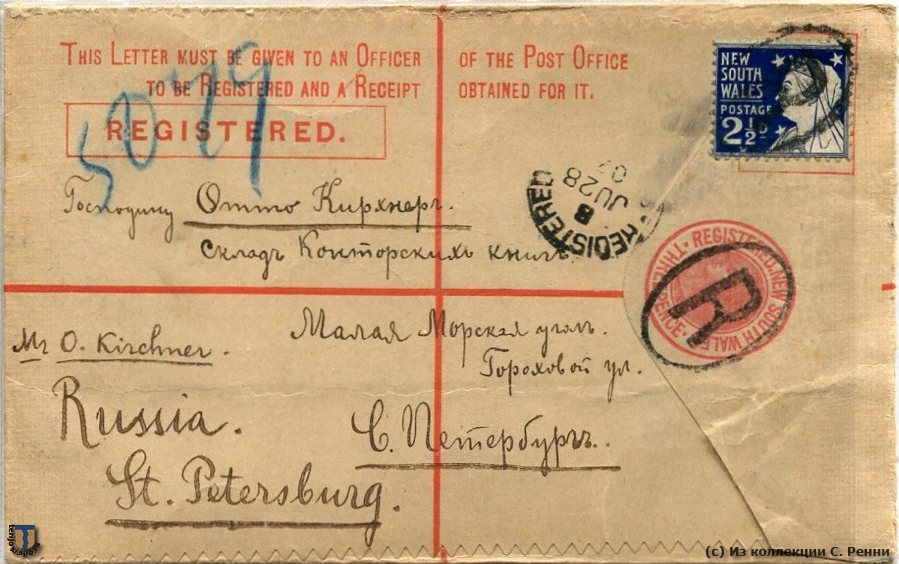 THIS LETTER MUST BE GIVEN TO AN OFFICER OF THE POST OFFICE
TO BE REGISTERED AND A RECEIPT OBTAINED FOR IT.
REGISTERED.
5079
NEW
SOUTH
WALES
POSTAGE
2½D
REGISTERED
B
JU 28
REGISTERED. NEW SOUTH WALES
THREE PENCE
R
Господину Отто Кирхнеръ.
складъ Конторскихъ книгъ
Малая Морская уголъ.
Гороховой ул.
С. Петербургъ.
Mr O. Kirchner.
Russia.
St. Petersburg.
(с) Из коллекции С. Ренни